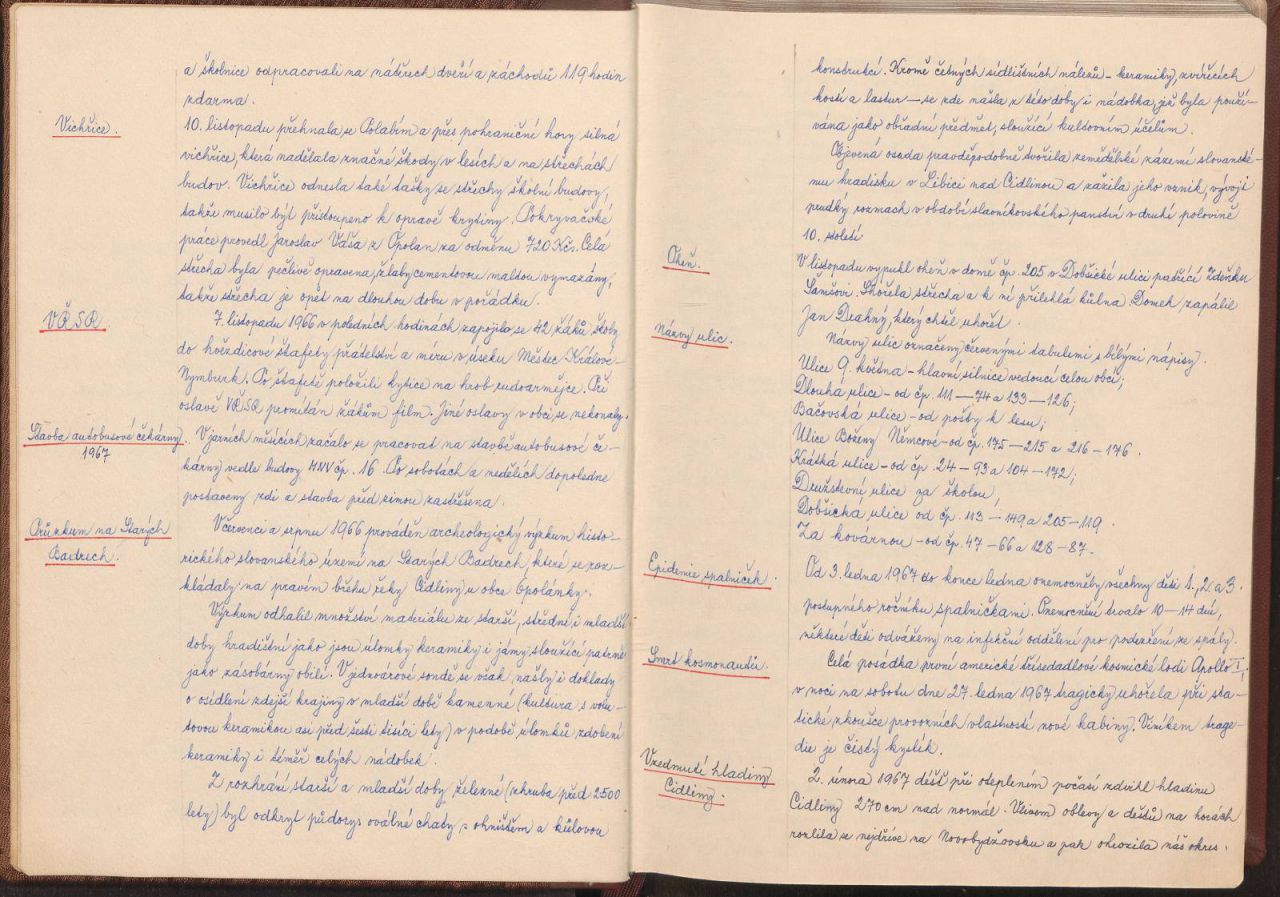 a školnice odpracovali na nátěrech dveří a záchodů 119 hodin
zdarma.
Vichřice.
10. listopadu přehnala se Polabím a přes pohraniční hory silná
vichřice, která nadělala značné škody v lesích a na střechách
budov. Vichřice odnesla také tašky se střechy školní budovy,
takže musilo být přistoupeno k opravě krytiny. Pokryvačské
práce provedl Jaroslav Váša z Opolan za odměnu 720 Kčs. Celá
střecha byla pečlivě opravena, žlaby cementovou maltou vymazány,
takže střecha je opět na dlouhou dobu v pořádku.
VŘSR.
7. listopadu 1966 v poledních hodinách zapojilo se 42 žáků školy
do hvězdicové štafety přátelství a míru v úseku Městec Králové-
Nymburk. Po štafetě položili kytice na hrob rudoarmějce. Při
oslavě VŘSR promítán žákům film. Jiné oslavy v obci se nekonaly.
Stavba autobusové čekárny
1967
V jarních měsících začalo se pracovat na stavbě autobusové če-
kárny vedle budovy MNV čp. 16. Po sobotách a nedělích dopoledne
postaveny zdi a stavba před zimou zastřešena.
Průzkum na Starých
Badrech.
V červenci a srpnu 1966 prováděn archeologický výzkum histo-
rického slovanského území na Starých Badrech, které se roz-
kládaly na pravém břehu řeky Cidliny u obce Opolánky.
Výzkum odhalil množství materiálu ze starší, střední i mladší
doby hradištní jako jsou úlomky keramiky i jámy sloužící patrně
jako zásobárny obilí. V jednárové sondě se však našly i doklady
o osídlení zdejší krajiny v mladší době kamenné (kultura s volu-
tovou keramikou asi před šesti tisíci lety) v podobě úlomků zdobené
keramiky i téměř celých nádobek.
Z rozhraní starší a mladší doby železné (zhruba před 2500
lety) byl odkryt půdorys oválné chaty s ohništěm a kůlovou
konstrukcí. Kromě četných sídlištních nálezů - keramiky, zvířecích
kostí a lastur - se zde našla z této doby i nádobka, jež byla použí-
vána jako obřadní předmět, sloužící kultovním účelům.
Objevená osada pravděpodobně tvořila zemědělské zázemí slovanské-
mu hradisku v Libici nad Cidlinou a zažila jeho vznik, vývoj i
prudký rozmach v období slavníkovského panství v druhé polovině
10. století
Oheň.
V listopadu vypukl oheň v domě čp. 205 v Dobšické ulici patřící Zdeňku
Šamšovi. Shořela střecha a k ní přilehlá kůlna. Domek zapálil
Jan Drahný, který chtěl uhořet.
Názvy ulic.
Názvy ulic označeny červenými tabulemi s bílými nápisy.
Ulice 9. května - hlavní silnice vedoucí celou obcí;
Dlouhá ulice - od čp. 111 — 74 a 133 — 126;
Bačovská ulice - od pošty k lesu;
Ulice Boženy Němcové - od čp. 175 — 215 a 216 - 176.
Krátká ulice - od čp. 24 - 93 a 104 - 172;
Družstevní ulice za školou,
Dobšická ulice od čp. 113 — 149 a 205 - 119.
Za kovárnou - od čp. 47 - 66 a 128 - 87.
Epidemie spalniček.
Od 3. ledna 1967 do konce ledna onemocněly všechny děti 1., 2. a 3.
postupného ročníku spalničkami. Onemocnění trvalo 10 - 14 dní,
některé děti odváženy na infekční oddělení pro podezření ze spály.
Smrt kosmonautů.
Celá posádka první americké třísedadlové kosmické lodi Apollo I,
v noci na sobotu dne 27. ledna 1967 tragicky uhořela při sta-
tické zkoušce provozních vlastností nové kabiny. Viníkem trage-
die je čistý kyslík.
Vzedmutí hladiny
Cidliny.
2. února 1967 déšť při oteplením počasí zdvihl hladinu
Cidliny 270 cm nad normál. Vlivem oblevy a dešťů na horách
rozlila se nejdříve na Novobydžovsku a pak ohrozila náš okres.